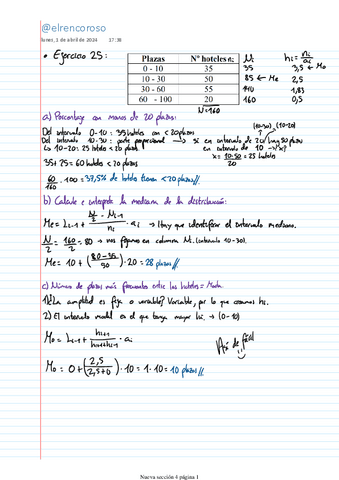 @elrencoroso
lunes, 1 de abril de 2024 17:38
• Ejercicio 25:
Plazas Nº hoteles nᵢ Nᵢ hᵢ = nᵢ/aᵢ
0 - 10 35 35 3,5 ← Mo
10 - 30 50 85 ← Me 2,5
30 - 60 55 140 1,83
60 - 100 20 160 0,5
N=160
a) Porcentaje con menos de 20 plazas:
Del intervalo 0-10: 35 hoteles con < 20 plazas
Del intervalo 10-30: parte proporcional → si en intervalo de 20 hay 50 plazas
(10-30) (10-20)
↳ 10-20: 25 hoteles < 20 plazas en intervalo de 10 → x?
x = 10·50/20 = 25 hoteles
35+25 = 60 hoteles < 20 plazas
60/160 · 100 = 37,5% de hoteles tienen < 20 plazas//
b) Calcule e interprete la mediana de la distribución:
Me = Lᵢ₋₁ + (N/2 - Nᵢ₋₁)/nᵢ · aᵢ → Hay que identificar el intervalo mediano.
N/2 = 160/2 = 80 → nos fijamos en columna Nᵢ (intervalo 10-30).
Me = 10 + (80-35/50) · 20 = 28 plazas//
c) Número de plazas más frecuentes entre los hoteles = Moda.
1) ¿La amplitud es fija o variable? Variable, por lo que usamos hᵢ.
2) El intervalo modal es el que tenga mayor hᵢ → (0-10)
Mo = Lᵢ₋₁ + hᵢ₊₁/(hᵢ₊₁+hᵢ₋₁) · aᵢ
Así de fácil
:)
Mo = 0 + (2,5/2,5+0) · 10 = 1 · 10 = 10 plazas//
Nueva sección 4 página 1